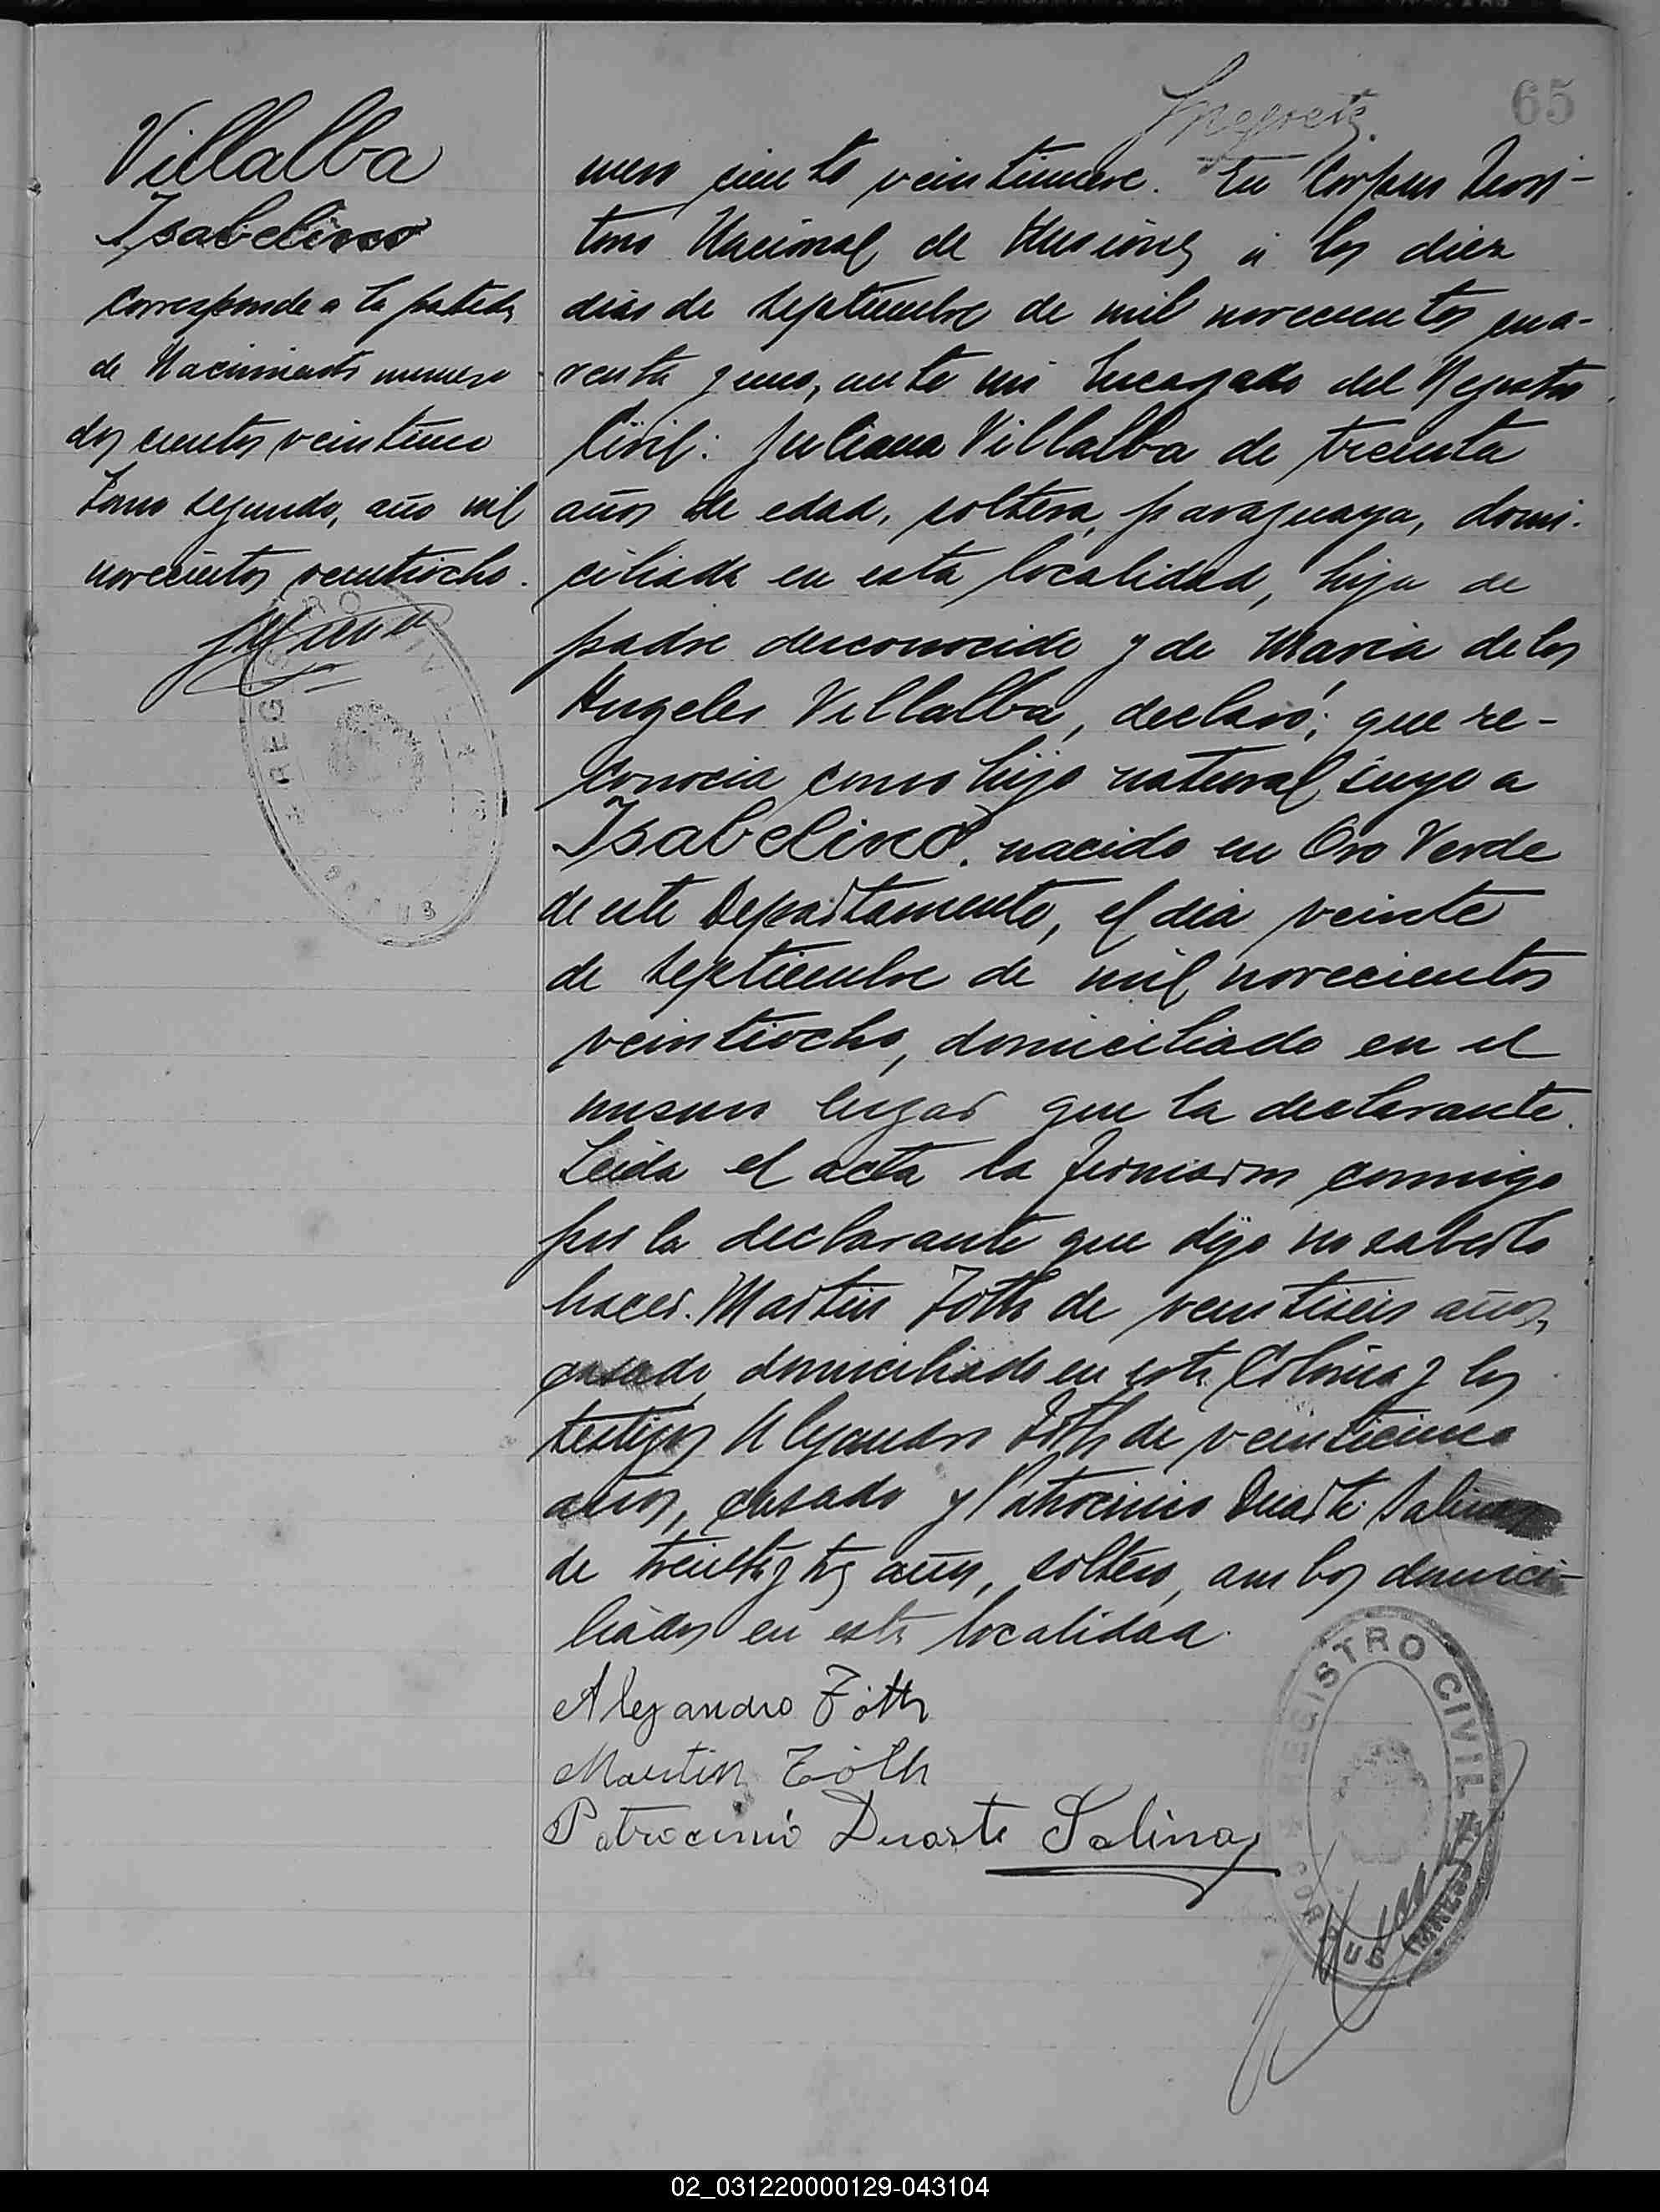 65
Villalba
Isabelino
Corresponde a la partida
de Nacimiento numero
dos cientos veintiuno
Tomo segundo, año mil
novecientos veintiocho.
mero ciento veintinueve. En Corpus Terri-
torio Nacional de Misiones a los diez
dias de Septiembre de mil novecientos cua-
renta y uno, ante mi Encargado del Registro
Civil: Juliana Villalba de treinta
años de edad, soltera, paraguaya, domi-
ciliada en esta localidad, hija de
padre desconocido y de Maria de los
Angeles Villalba, declaró; que re-
conocia como hijo natural suyo a
Isabelino, nacido en Oro Verde
de este Departamento, el dia veinte
de Septiembre de mil novecientos
veintiocho, domiciliado en el
mismo lugar que la declarante.
Leida el acta la firmaron conmigo
por la declarante que dijo no saberlo
hacer. Martin Toth de veintiseis años,
casado domiciliado en esta Colonia y los
testigos Alejandro Toth de veinticinco
años, casado y Patrocinio Duarte Salinas
de treinta y tres años, soltero, ambos domici-
liados en esta localidad.
Alejandro Tóth
Martin Tóth
Patrocinio Duarte Salinas
REGISTRO CIVIL
CORPUS
REGISTRO CIVIL
CORPUS (MNES)
02_031220000129-043104